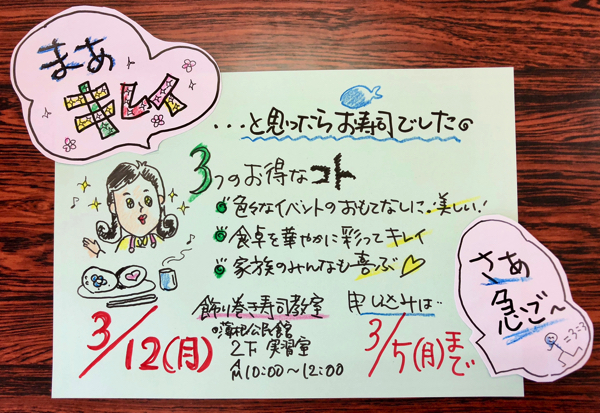 まあ
キレイ
...と思ったらお寿司でした。
3つのお得なコト
色々なイベントのおもてなしに・美しい!
食卓を華やかに彩ってキレイ
家族のみんなも喜ぶ♡
飾り巻き寿司教室
3/12(月)
公民館
2F 実習室
AM10:00〜12:00
申し込みは…
3/5(月)まで
さあ
急ご〜